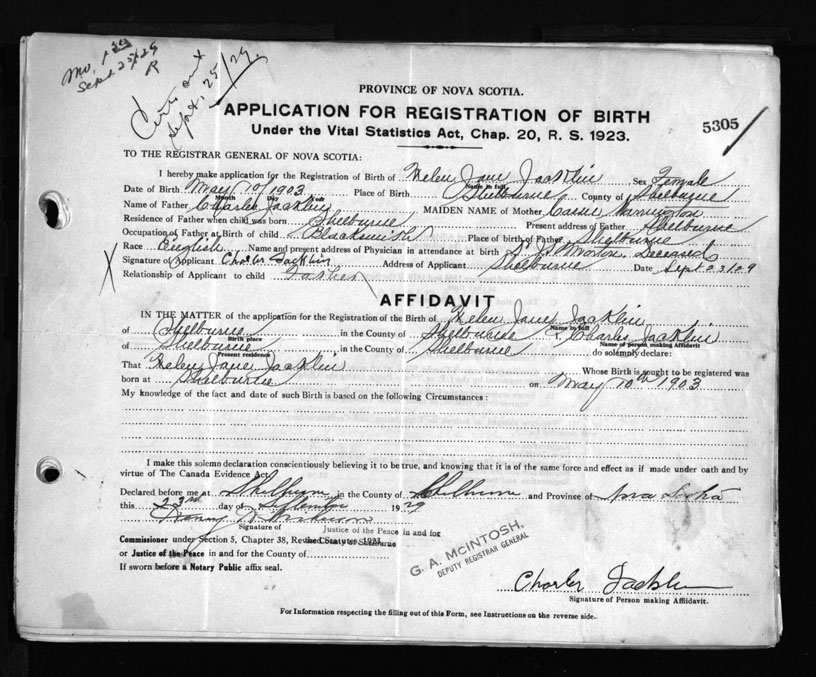 Mo. 1
Sept 25/29
R
Certs out
Sept. 25/29.
PROVINCE OF NOVA SCOTIA.
APPLICATION FOR REGISTRATION OF BIRTH
Under the Vital Statistics Act, Chap. 20, R. S. 1923.
5305
TO THE REGISTRAR GENERAL OF NOVA SCOTIA:
I hereby make application for the Registration of Birth of Helen Jane Jacklin Sex Female
Name in full
Date of Birth May 10/1903 Place of Birth Shelburne County of Shelburne
Month Day
Name of Father Charles Jacklin MAIDEN NAME of Mother Cassie
Residence of Father when child was born Shelburne Present address of Father Shelburne
Occupation of Father at Birth of child Blacksmith Place of birth of Father Shelburne
Race English Name and present address of Physician in attendance at birth Dr. Morton Deceased
Signature of Applicant Charles Jacklin Address of Applicant Shelburne Date Sept 23/29
Relationship of Applicant to child Father
AFFIDAVIT
IN THE MATTER of the application for the Registration of the Birth of Helen Jane Jacklin
Name in full
of Shelburne in the County of Shelburne I, Charles Jacklin
Birth place Name of person making Affidavit
of Shelburne in the County of Shelburne do solemnly declare:
Present residence
That Helen Jane Jacklin Whose Birth is sought to be registered was
born at Shelburne on May 10th 1903
My knowledge of the fact and date of such Birth is based on the following Circumstances:
I make this solemn declaration conscientiously believing it to be true, and knowing that it is of the same force and effect as if made under oath and by
virtue of The Canada Evidence Act.
Declared before me at Shelburne in the County of Shelburne and Province of Nova Scotia
this 23rd day of September 1929
Signature of Justice of the Peace in and for
Commissioner under Section 5, Chapter 38, Revised Statutes, 1923
the County of Shelburne
or Justice of the Peace in and for the County of
If sworn before a Notary Public affix seal.
G. A. McINTOSH,
DEPUTY REGISTRAR GENERAL
Charles Jacklin
Signature of Person making Affidavit.
For Information respecting the filling out of this Form, see Instructions on the reverse side.